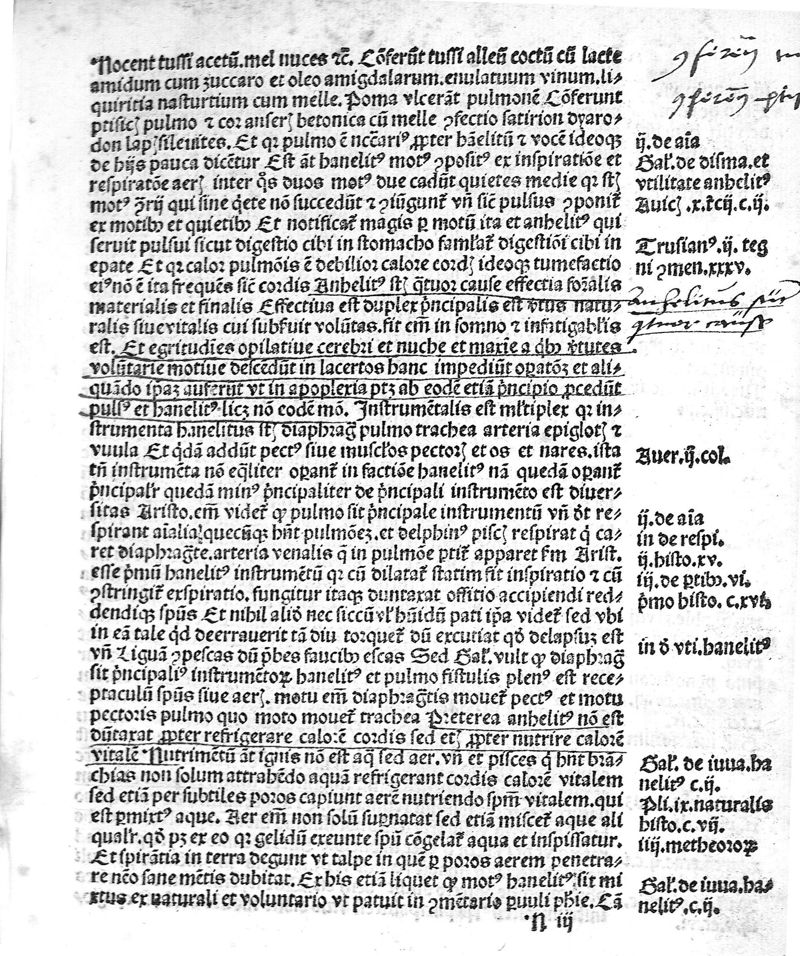 Nocent tussi acetū.mel nuces ⁊c̄. Cōferūt tussi alleū coctū cū lacte
amidum cum zuccaro et oleo amigdalarum.enulatuum vinum.li⸗
quiritia nasturtium cum melle. Poma vlcerāt pulmonē Cōferunt
ptisicꝭ pulmo ⁊ cor anserꝭ betonica cū melle ꝯfectio satirion dyaro⸗
don lapꝭ sileuites. Et qꝛ pulmo ē nccāriꝰ ꝓpter hāelitū ⁊ vocē ideoqꝫ
de hijs pauca dicētur Est āt hanelitꝰ motꝰ ꝯpositꝰ ex inspiratiōe et
respiratōe aerꝭ inter q̄s duos motꝰ due cadūt quietes medie qꝛ stꝭ
motꝰ ꝯ̄rij qui sine q̄ete nō succedūt ⁊ ꝯiūgunt᷑ vn̄ sic̄ pulsus ꝯponit᷑
ex motibꝰ et quietibꝰ Et notificat᷑ magis ꝑ motū ita et anhelitꝰ qui
seruit pulsui sicut digestio cibi in stomacho famlat᷑ digestiōi cibi in
epate Et qꝛ calor pulmōis ē debilior calore cordꝭ ideoqꝫ tumefactio
eiꝰ nō ē ita frequēs sic̄ cordis Anhelitꝰ stꝭ q̄tuor cause effectia foꝛalis
materialis et finalis Effectiva est duplex p̄ncipalis est v̄tus natu⸗
ralis siue vitalis cui subseruit volūtas.fit em̄ in somno ⁊ infatigablis
est. Et egritudīes opilatiue cerebri et nuche et maxīe a q̄bꝰ v̄tutes
volūtarie motiue descēdūt in lacertos hanc impediūt oꝑatōꝫ et ali⸗
quādo ip̄aꝫ auferūt vt in apoplexia ptꝫ ab eodē etiā p̄ncipio ꝓcedūt
pulsꝰ et hanelitꝰ.licꝫ nō eodē mō. Instrumētalis est mltiplex qꝛ in⸗
strumenta hanelitus stꝭ diaphraḡ pulmo trachea arteria epiglotꝭ ⁊
vuula Et q̄dā addūt pectꝰ siue muscłos pectorꝭ et os et nares.ista
tn̄ instrumēta nō eq̄liter oꝑant᷑ in factiōe hanelitꝰ nā quedā oꝑant᷑
p̄ncipalr̄ quedā minꝰ p̄ncipaliter de p̄ncipali instrumēto est diuer⸗
sitas Aristo.em̄ videt᷑ ꝙ pulmo sit p̄ncipale instrumentū vn̄ dt᷑ re⸗
spirant aīalia quecūqꝫ hn̄t pulmōeꝫ.et delphinꝰ piscꝭ respirat q̄ ca⸗
ret diaphraḡte.arteria venalis q̄ in pulmōe ꝑtit᷑ apparet s̄m Arist.
esse p̄mū hanelitꝰ instrumētū qꝛ cū dilatat᷑ statim fit inspiratio ⁊ cū
ꝯstringit᷑ exspiratio. fungitur itaqꝫ duntaxat offitio accipiendi red⸗
dendiqꝫ spūs Et nihil aliđ nec siccū vł hūidū pati ip̄a videt᷑ sed vbi
in eā tale q̄d deerrauerit tā diu torquet᷑ dū excutiat qđ delapsuꝫ est
vn̄ Liguā ꝯpescas dū p̄bes faucibꝰ escas Sed Gał. vult ꝙ diaphraḡ
sit p̄ncipaliꝰ instrumētoꝝ hanelitꝰ et pulmo fistulis plenꝰ est rece⸗
ptaculū spūs siue aerꝭ. motu em̄ diaphraḡtis mouet᷑ pectꝰ et motu
pectoris pulmo quo moto mouet᷑ trachea Preterea anhelitꝰ nō est
dūtaxat ꝓpter refrigerare calorē cordis sed etꝭ ꝓpter nutrire calorē
vitalē Nutrimētū āt ignis nō est aq̄ sed aer.vn̄ et pisces q̄ hn̄t brā⸗
chias non solum attrahēdo aquā refrigerant cordis calorē vitalem
sed etiā per subtiles poros capiunt aerē nutriendo spm̄ vitalem.qui
est ꝑmixtꝰ aque. Aer em̄ non solū supnatat sed etiā miscet᷑ aque ali
qualr̄. qđ pꝫ ex eo qꝛ gelidū exeunte spū cōgelat᷑ aqua et inspissatur.
Et spirātia in terra degunt vt talpe in quē ꝑ poros aerem penetra⸗
re nēo sane mētis dubitat. Ex his etiā liquet ꝙ motꝰ hanelitꝰ sit mi
xtus ex naturali et voluntario vt patuit in ꝯmētario ꝑuuli ph̄ie. Cā
N iij
ꝯferūt
ꝯferūt
ij.de aīa
Gał.de disma.et
vtilitate anhelitꝰ
Auicꝭ.x.tc̄ij.c.ij.
Trusianꝰ.ij. teg
ni ꝯmen.xxxv.
Anhelitus sūt
qtuor cause
Auer.ij.col.
ij.de aīa
in de respi.
ij.histo.xv.
iij.de ꝑtibꝰ.vi.
p̄mo histo. c.xvi.
in đ vti.hanelitꝰ
Gał. de iuua.ha
nelitꝰ c.ij.
Pli.ix.naturalis
histo.c.vij.
iiij.metheoroꝝ
Gał.de iuua.ha⸗
nelitꝰ.c.ij.